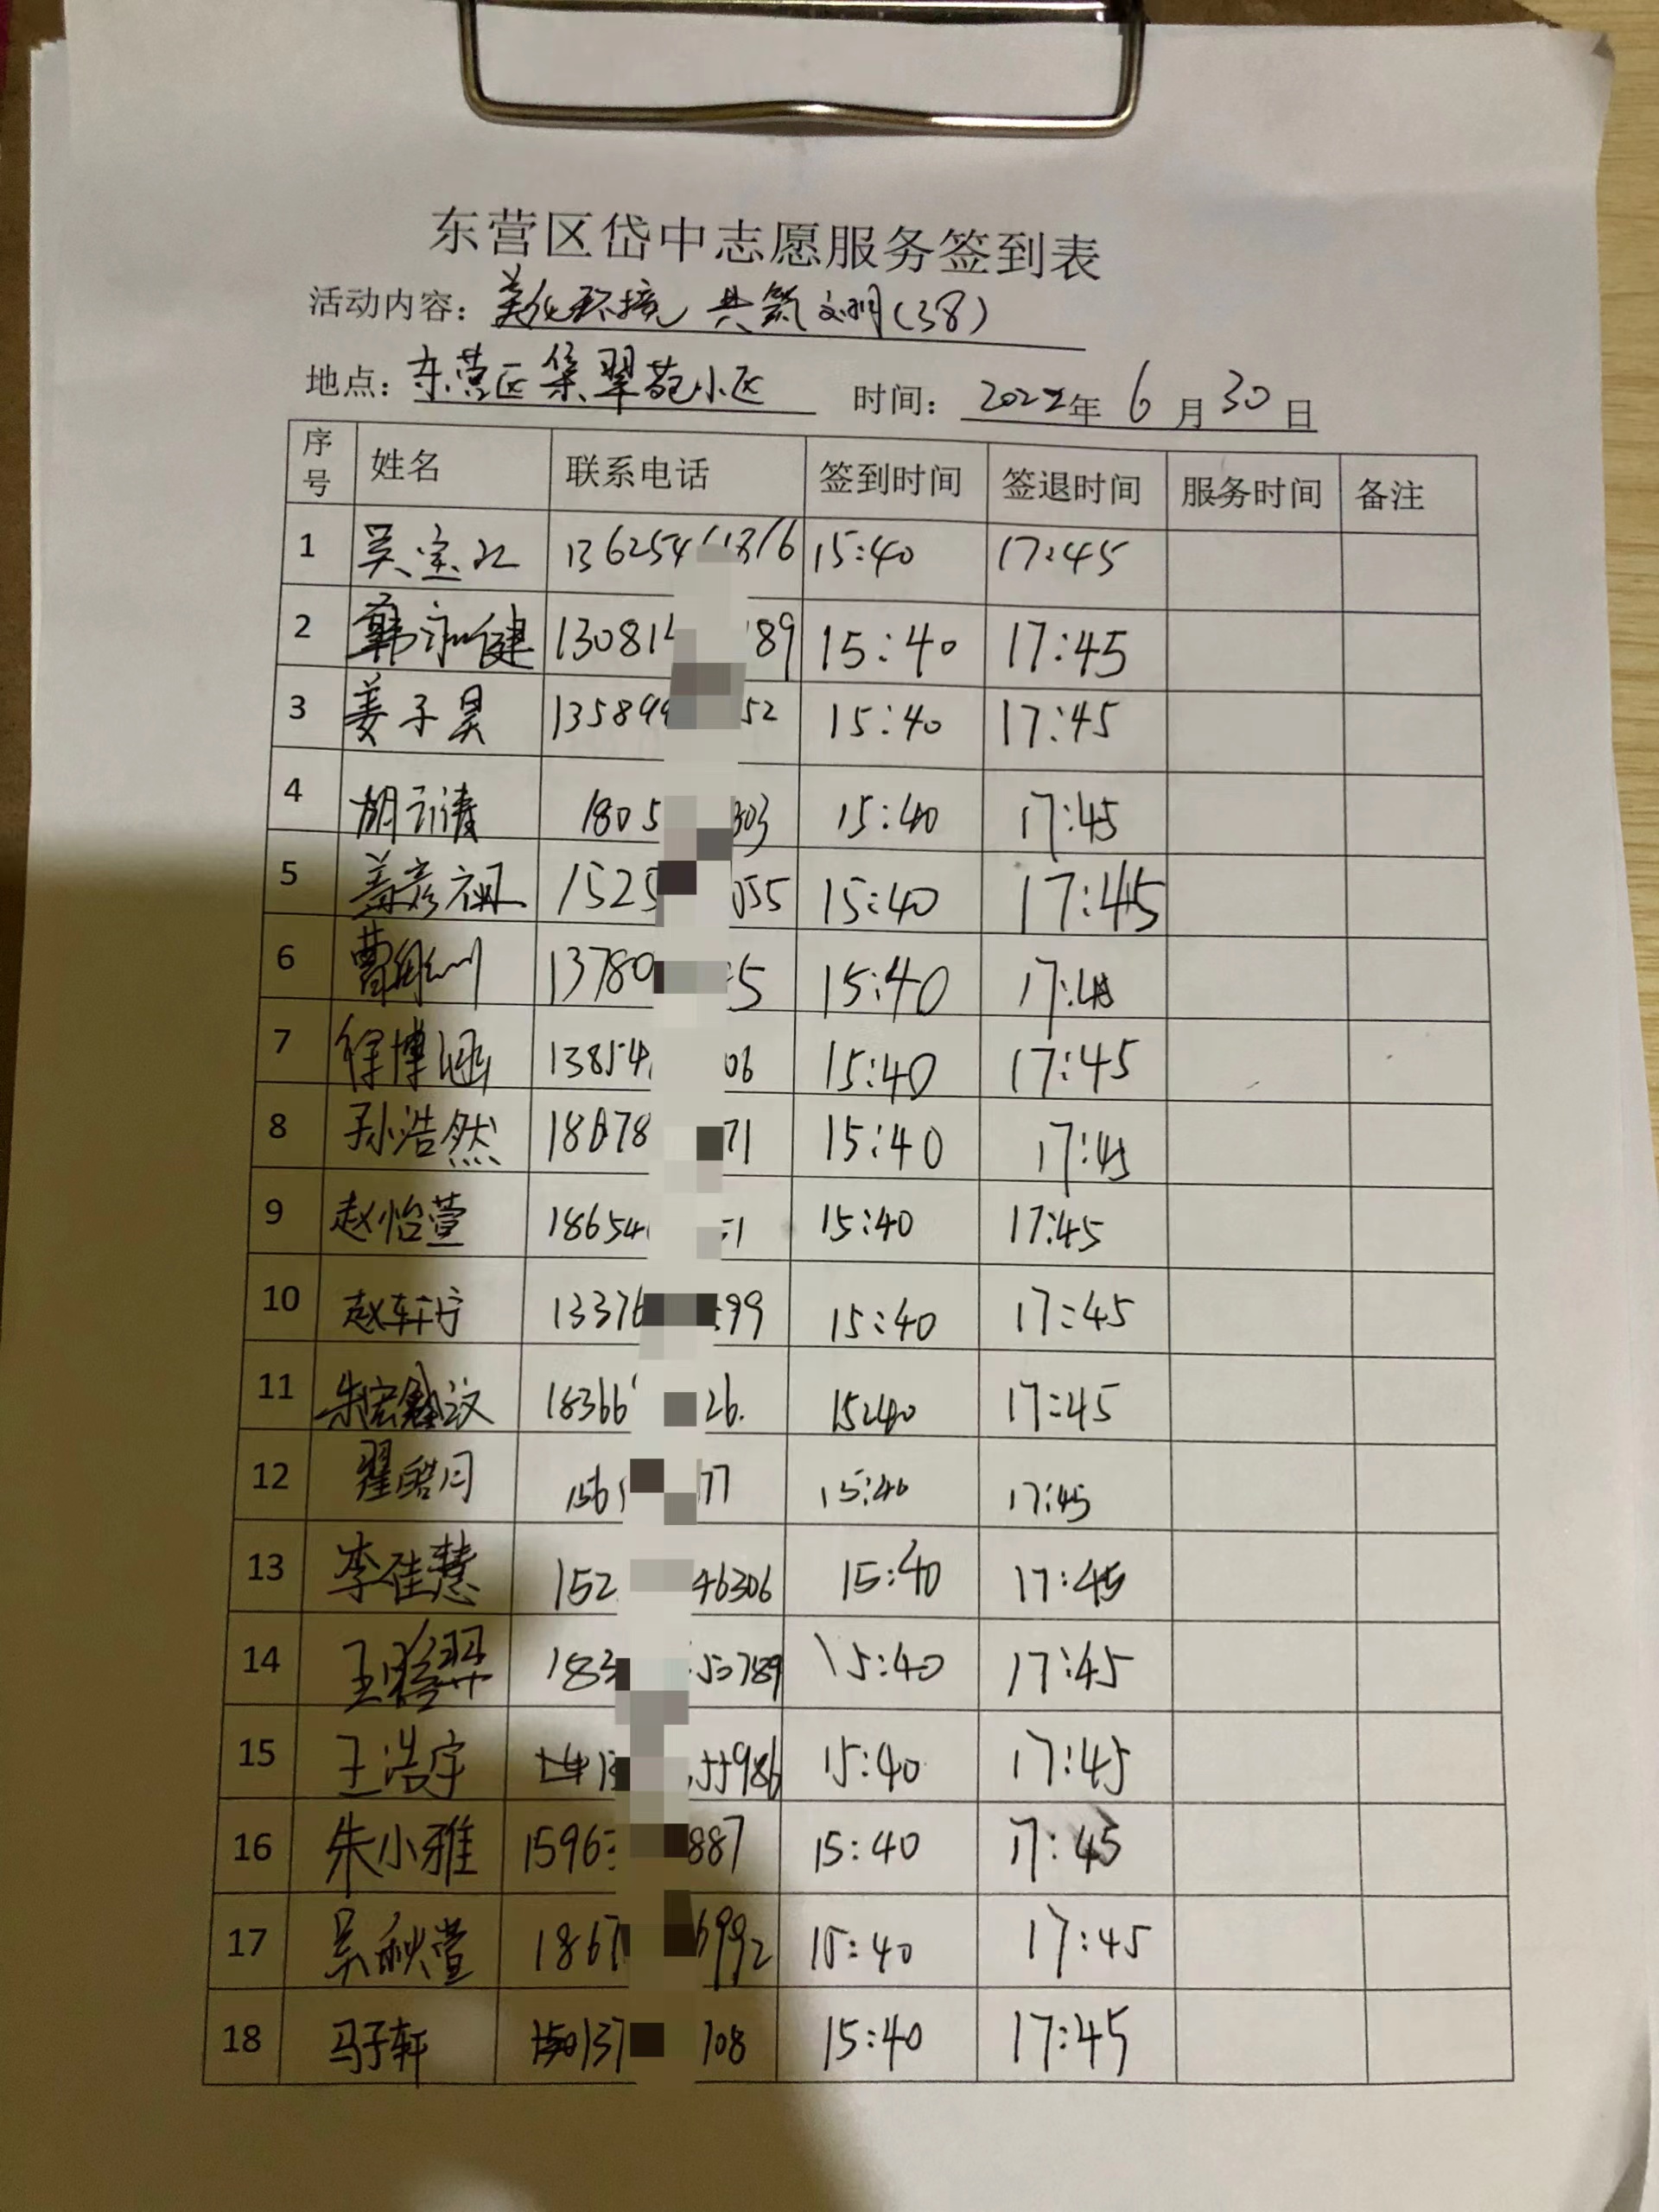 东营区岱中志愿服务签到表
活动内容：美化环境 共筑文明(38)
地点：东营区集翠苑小区 时间：2022年6月30日
序号 姓名 联系电话 签到时间 签退时间 服务时间 备注
1 吴宝 15:40 17:45
2 韩 健 130814 189 15:40 17:45
3 姜子昊 135899 52 15:40 17:45
4 胡 1805 303 15:40 17:45
5 姜彦祖 1525 055 15:40 17:45
6 曹 13780 5 15:40 17:45
7 徐博涵 13854 06 15:40 17:45
8 孙浩然 71 15:40 17:45
9 赵怡萱 18654 1 15:40 17:45
10 赵轩 13376 99 15:40 17:45
11 朱宏 汶 18366 26. 15:40 17:45
12 翟皓月 156 77 15:40 17:45
13 李佳慧 152 46306 15:40 17:45
14 王 183 50789 15:40 17:45
15 王浩宇 55986 15:40 17:45
16 朱小雅 1596 887 15:40 17:45
17 吴秋萱 1867 6992 15:40 17:45
18 马子轩 137 108 15:40 17:45